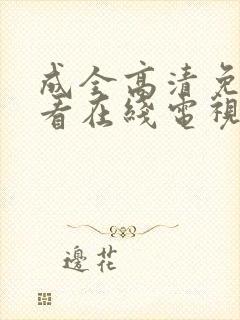 成全高清免
看在綫電視
邊花